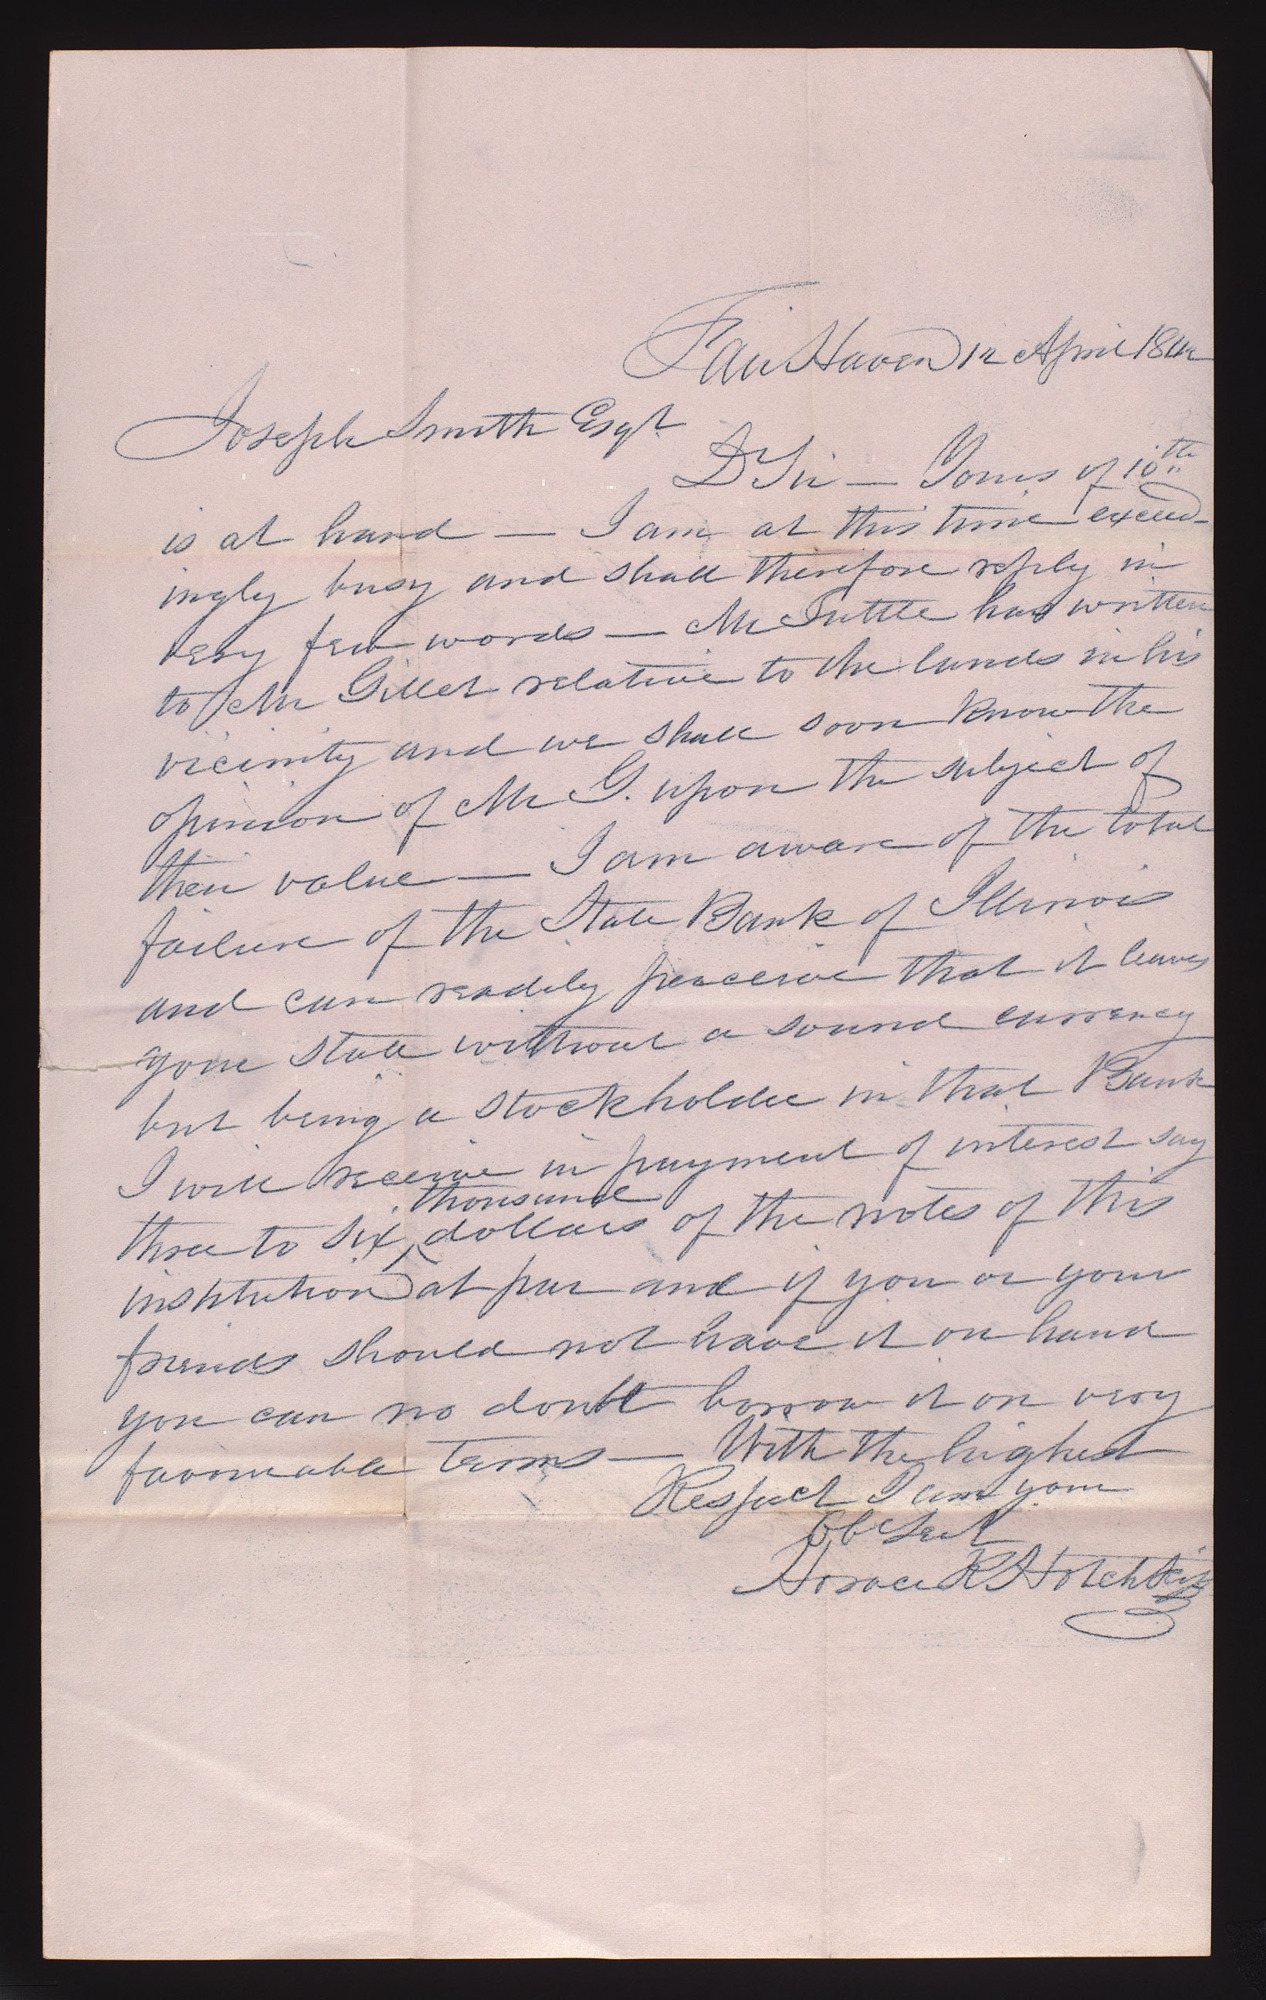 Fair Haven 12 April 1842
Joseph Smith Esqr
D Sir — Yours of 10th
is at hand — I am at this time exceed-
ingly busy and shall therefore reply in
very few words — Mr Tuttle has written
to Mr Gillet relative to the lands in his
vicinity and we shall soon know the
opinion of Mr G. upon the subject of
their value — I am aware of the total
failure of the State Bank of Illinois
and can readily perceive that it leaves
your State without a sound currency
but being a stockholder in that Bank
I will receive in payment of interest say
thousand
three to six ‸ dollars of the notes of this
institution at par and if you or your
friends should not have it on hand
you can no doubt borrow it on very
favourable terms — With the highest
Respect I am your
Ob Servt
Horace R Hotchkiss